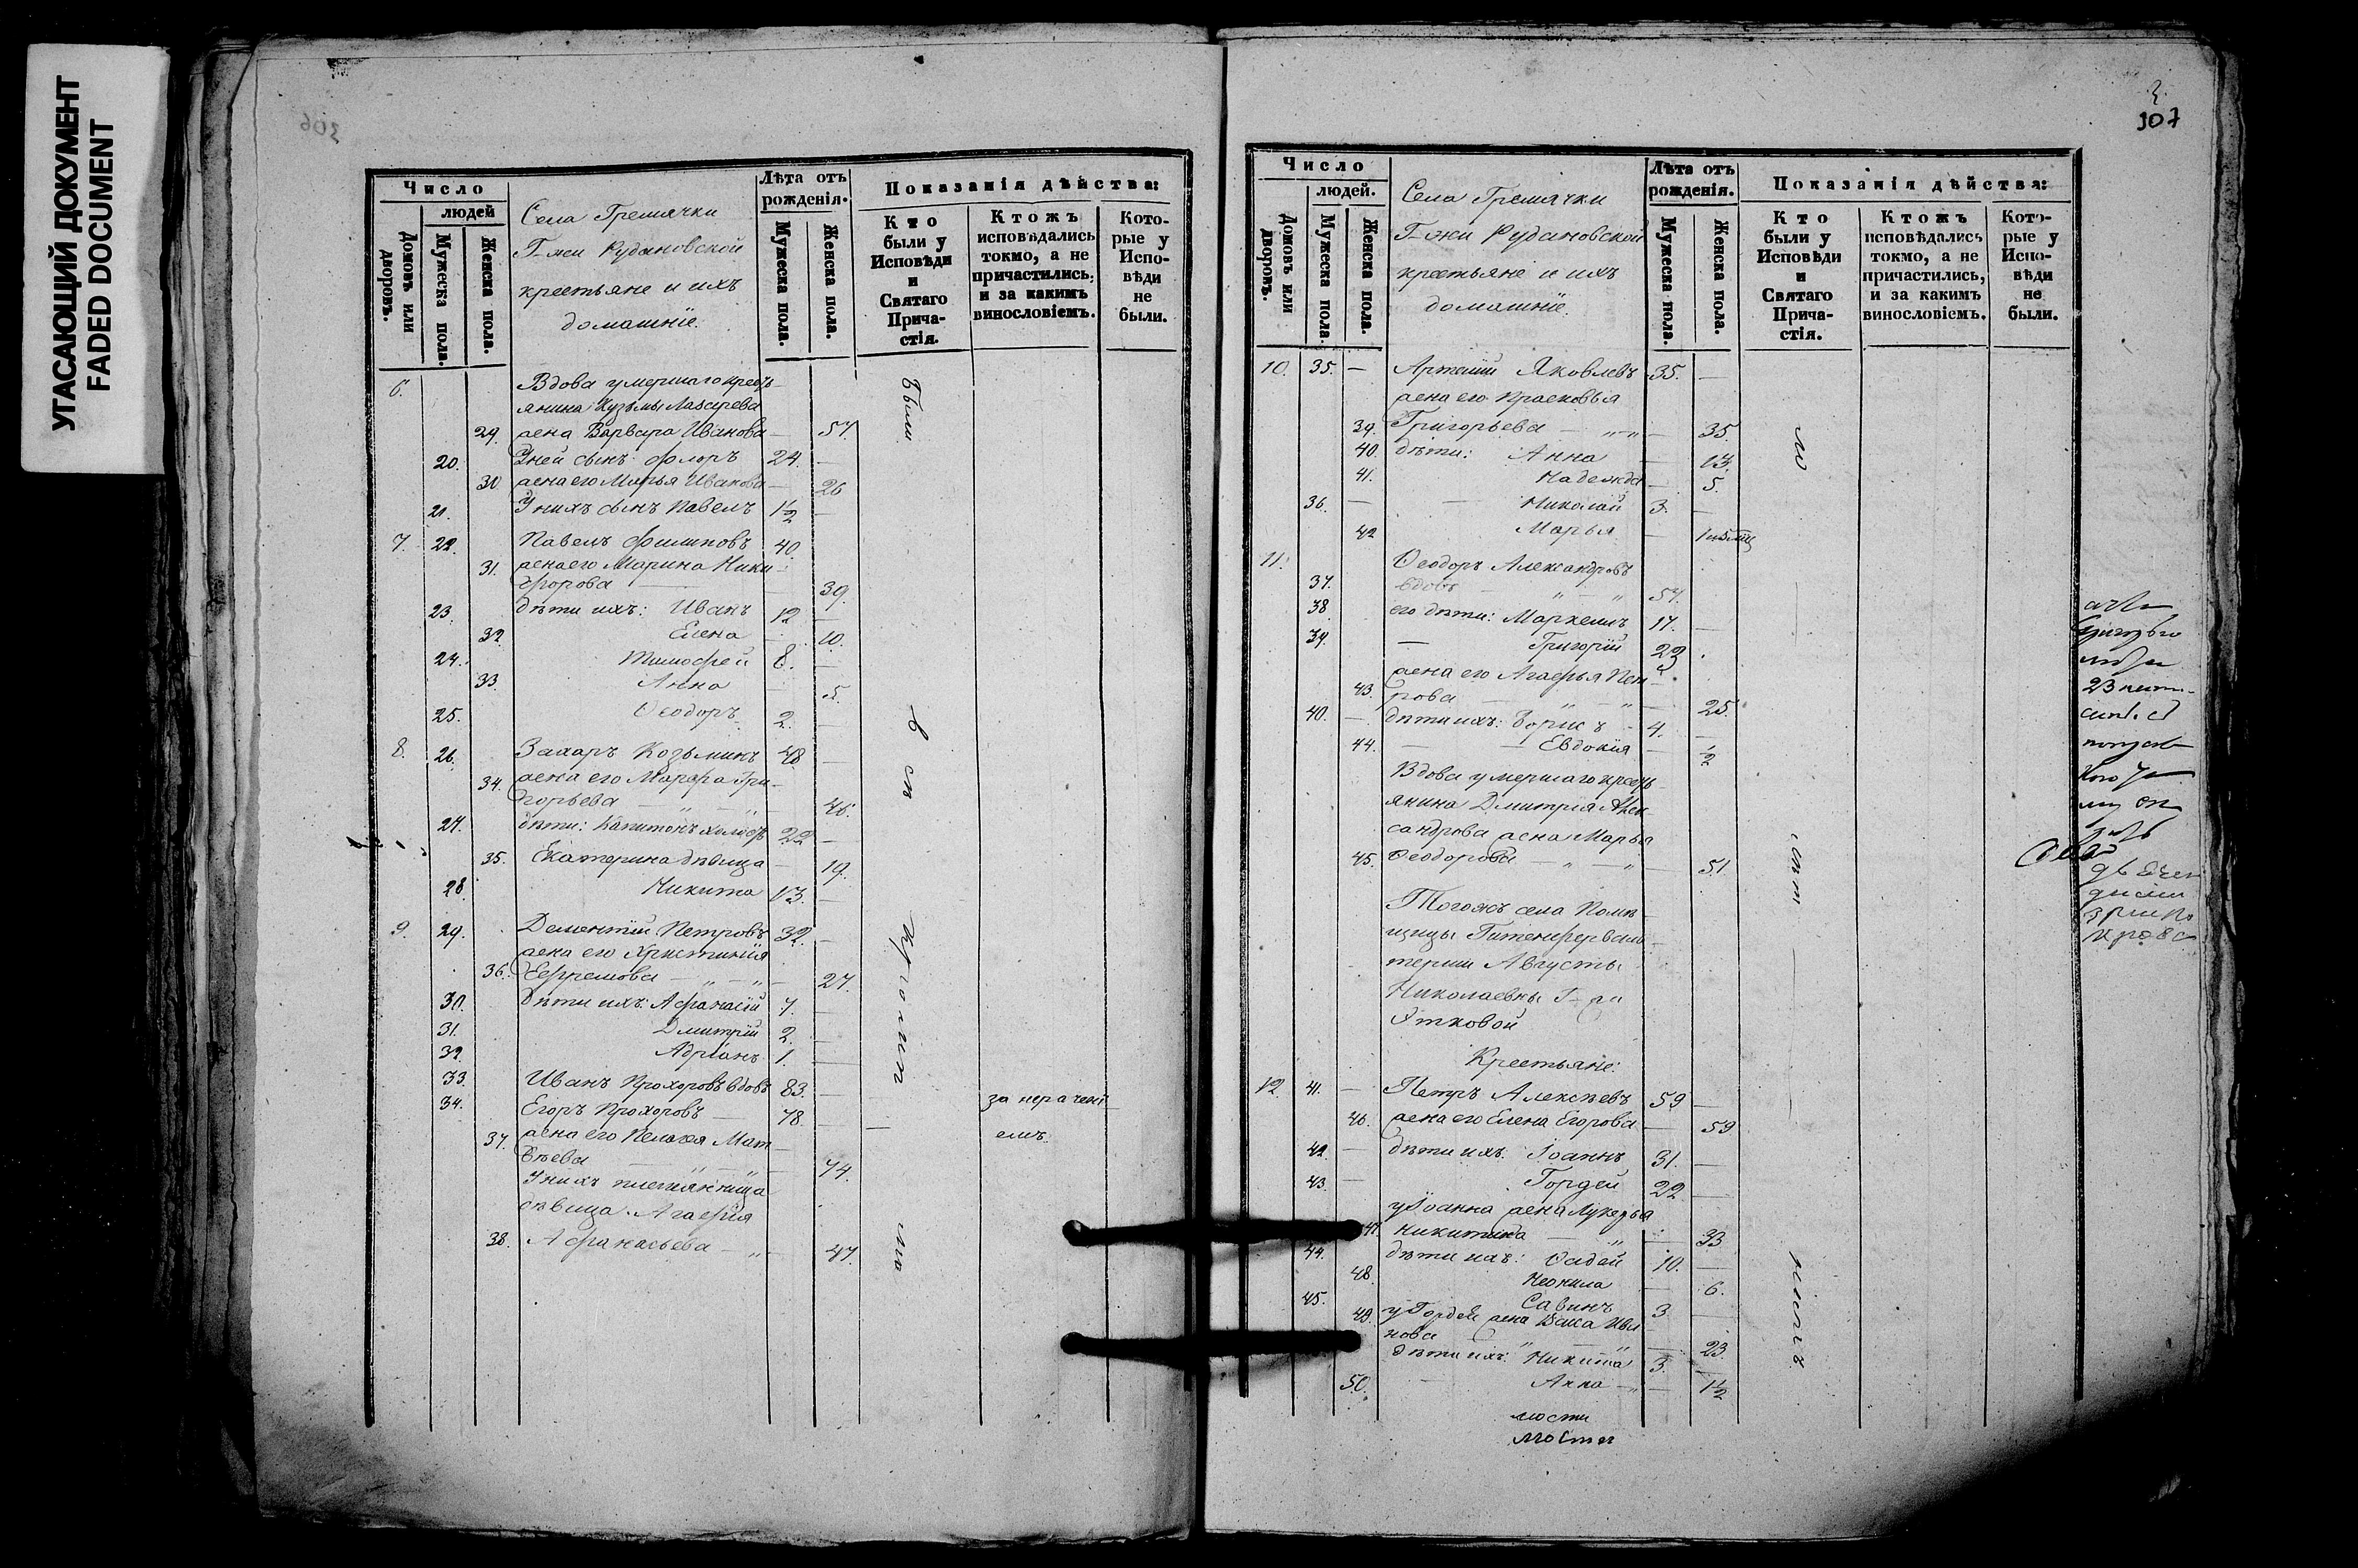 УГАСАЮЩИЙ ДОКУМЕНТ
FADED DOCUMENT
306
Число
людей
Домовъ или дворовъ.
Мужеска пола.
Женска пола.
Села Гремячки
Г-жи Рудановской
крестьяне и ихъ
домашніе.
Лѣта отъ рожденія.
Мужеска пола.
Женска пола.
Показанія дѣйства:
Кто были у Исповѣди и Святаго Причастія.
Ктожъ исповѣдались токмо, а не причастились, и за какимъ винословіемъ.
Которые у Исповѣди не были.
6. Вдова умершаго кресть-
янина Кузьмы Лазарева
29. жена Варвара Иванова — 57.
20. У ней сынъ Флоръ 24. —
30 жена его Марья Иванова — 26
21. У нихъ сынъ Павелъ 1½ —
7. 22. Павелъ Филиповъ 40.
31. жена его Марина Ники-
форова — 39.
23. дѣти ихъ: Иванъ 12 —
32. Елена — 10.
24. Тимофей 8. —
33. Анна — 5.
25. Ѳеодоръ 2. —
8. 26. Захаръ Козьминъ 48 —
34. жена его Марфа Гри-
горьева — „ — „ — 46.
27. дѣти: Капитонъ холост 22 —
35. Екатерина дѣвица — 19.
28. Никита 13. —
9. 29. Дементій Петровъ 32. —
жена его Христинія
36. Ефремова — „ — „ — 27.
30. Дѣти ихъ: Афанасій 7. —
31. Дмитрій 2. —
32. Адріанъ 1. —
33. Иванъ Прохоровъ вдовъ 83. —
34. Егоръ Прохоровъ — 78. —
37. жена его Пелагея Мат-
вѣева — „ — „ — 74.
У нихъ племянница
дѣвица Агафія
38. Афанасьева — „ — 47.
Были
всѣ
кромѣ
за нерачені-
емъ.
307
Число
людей.
Домовъ или дворовъ.
Мужеска пола
Женска пола.
Села Гремячки
Г-жи Рудановской
крестьяне и ихъ
домашніе.
Лѣта отъ рожденія.
Мужеска пола.
Женска пола.
Показанія дѣйства:
Кто были у Исповѣди и Святаго Причастія.
Ктожъ исповѣдались токмо, а не причастились, и за какимъ винословіемъ.
Которые у Исповѣди не были.
10. 35. — Артемій Яковлевъ 35. —
жена его Прасковья
39. Григорьева — „ — 35.
40. дѣти: Анна — 13.
41. Надежда — 5.
36. — Николай 3. —
42 Марья —
11. Ѳеодоръ Александровъ
37. вдовъ — „ — „ 57.
38 его дѣти: Маркелъ 17. —
39. — Григорій 22
жена его Агафья Пет-
43. рова — „ — „ — 25.
40. — дѣти ихъ: Борисъ — 4. —
44. — Евдокія — ½
Вдова умершаго кресть-
янина Дмитрія Алек-
сандрова жена Марья
45. Ѳеодорова — „ — „ — 51.
Тогожъ села Помѣ-
щицы
Августы
Николаевны Г-жи
Крестьяне:
12. 41. — Петръ Алексѣевъ 59 —
46. жена его Елена Егорова — 59
42. — дѣти ихъ: Іоаннъ 31. —
43. — Гордей 22 —
у Іоанна жена Лукерья
47. Никитина — „ — 33
44. дѣти ихъ: Фадей 10. —
48. Неонила — 6.
45. Савинъ 3
49. у Гордея жена Ива-
нова — „ — „ — 23.
дѣти ихъ: Никита 3. —
50. Анна — „ — 1½